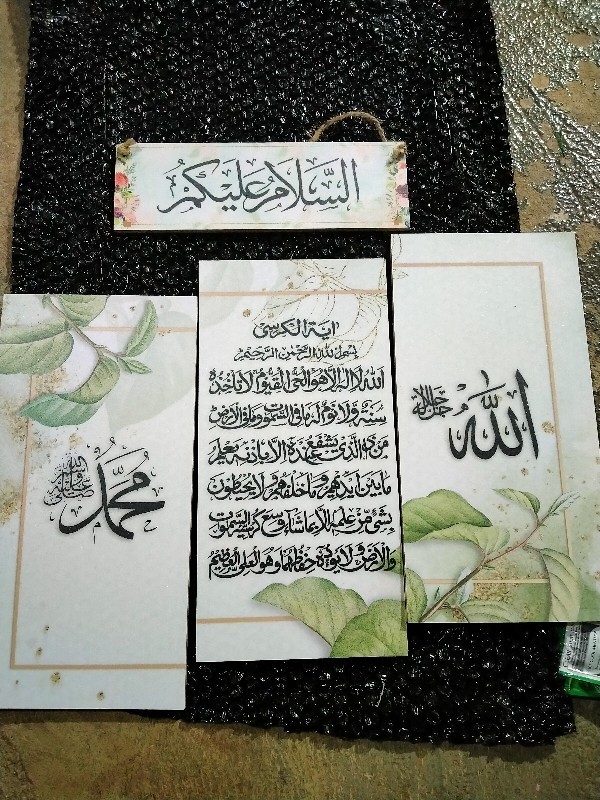 السَّلَامُ عَلَيْكُمْ
اية الكرسي
بسم الله الرحمن الرحيم
الله لا اله الا هو الحي القيوم لا تأخذه
سنة ولا نوم له ما في السموت وما في الارض
من ذا الذي يشفع عنده الا باذنه يعلم
ما بين ايديهم وما خلفهم ولا يحيطون
بشيء من علمه الا بما شاء وسع كرسيه السموت
والارض ولا يوده حفظهما وهو العلي العظيم
الله
جل جلاله
محمد
صلى الله عليه وسلم